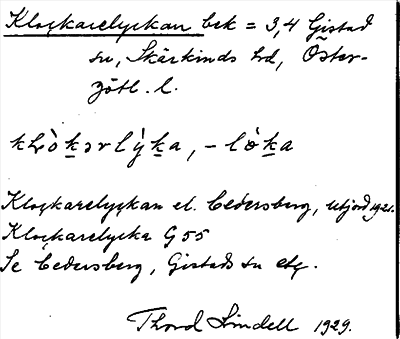 Klockarelyckan bek = 3,4 Gistad
sn, Skärkinds hd, Öster-
götl. l.
Klockarelyckan el. Cedersberg, utjord 1921.
Klockarelycka G 55
Se Cedersberg, Gistads sn etc.
Thord Lindell 1929.